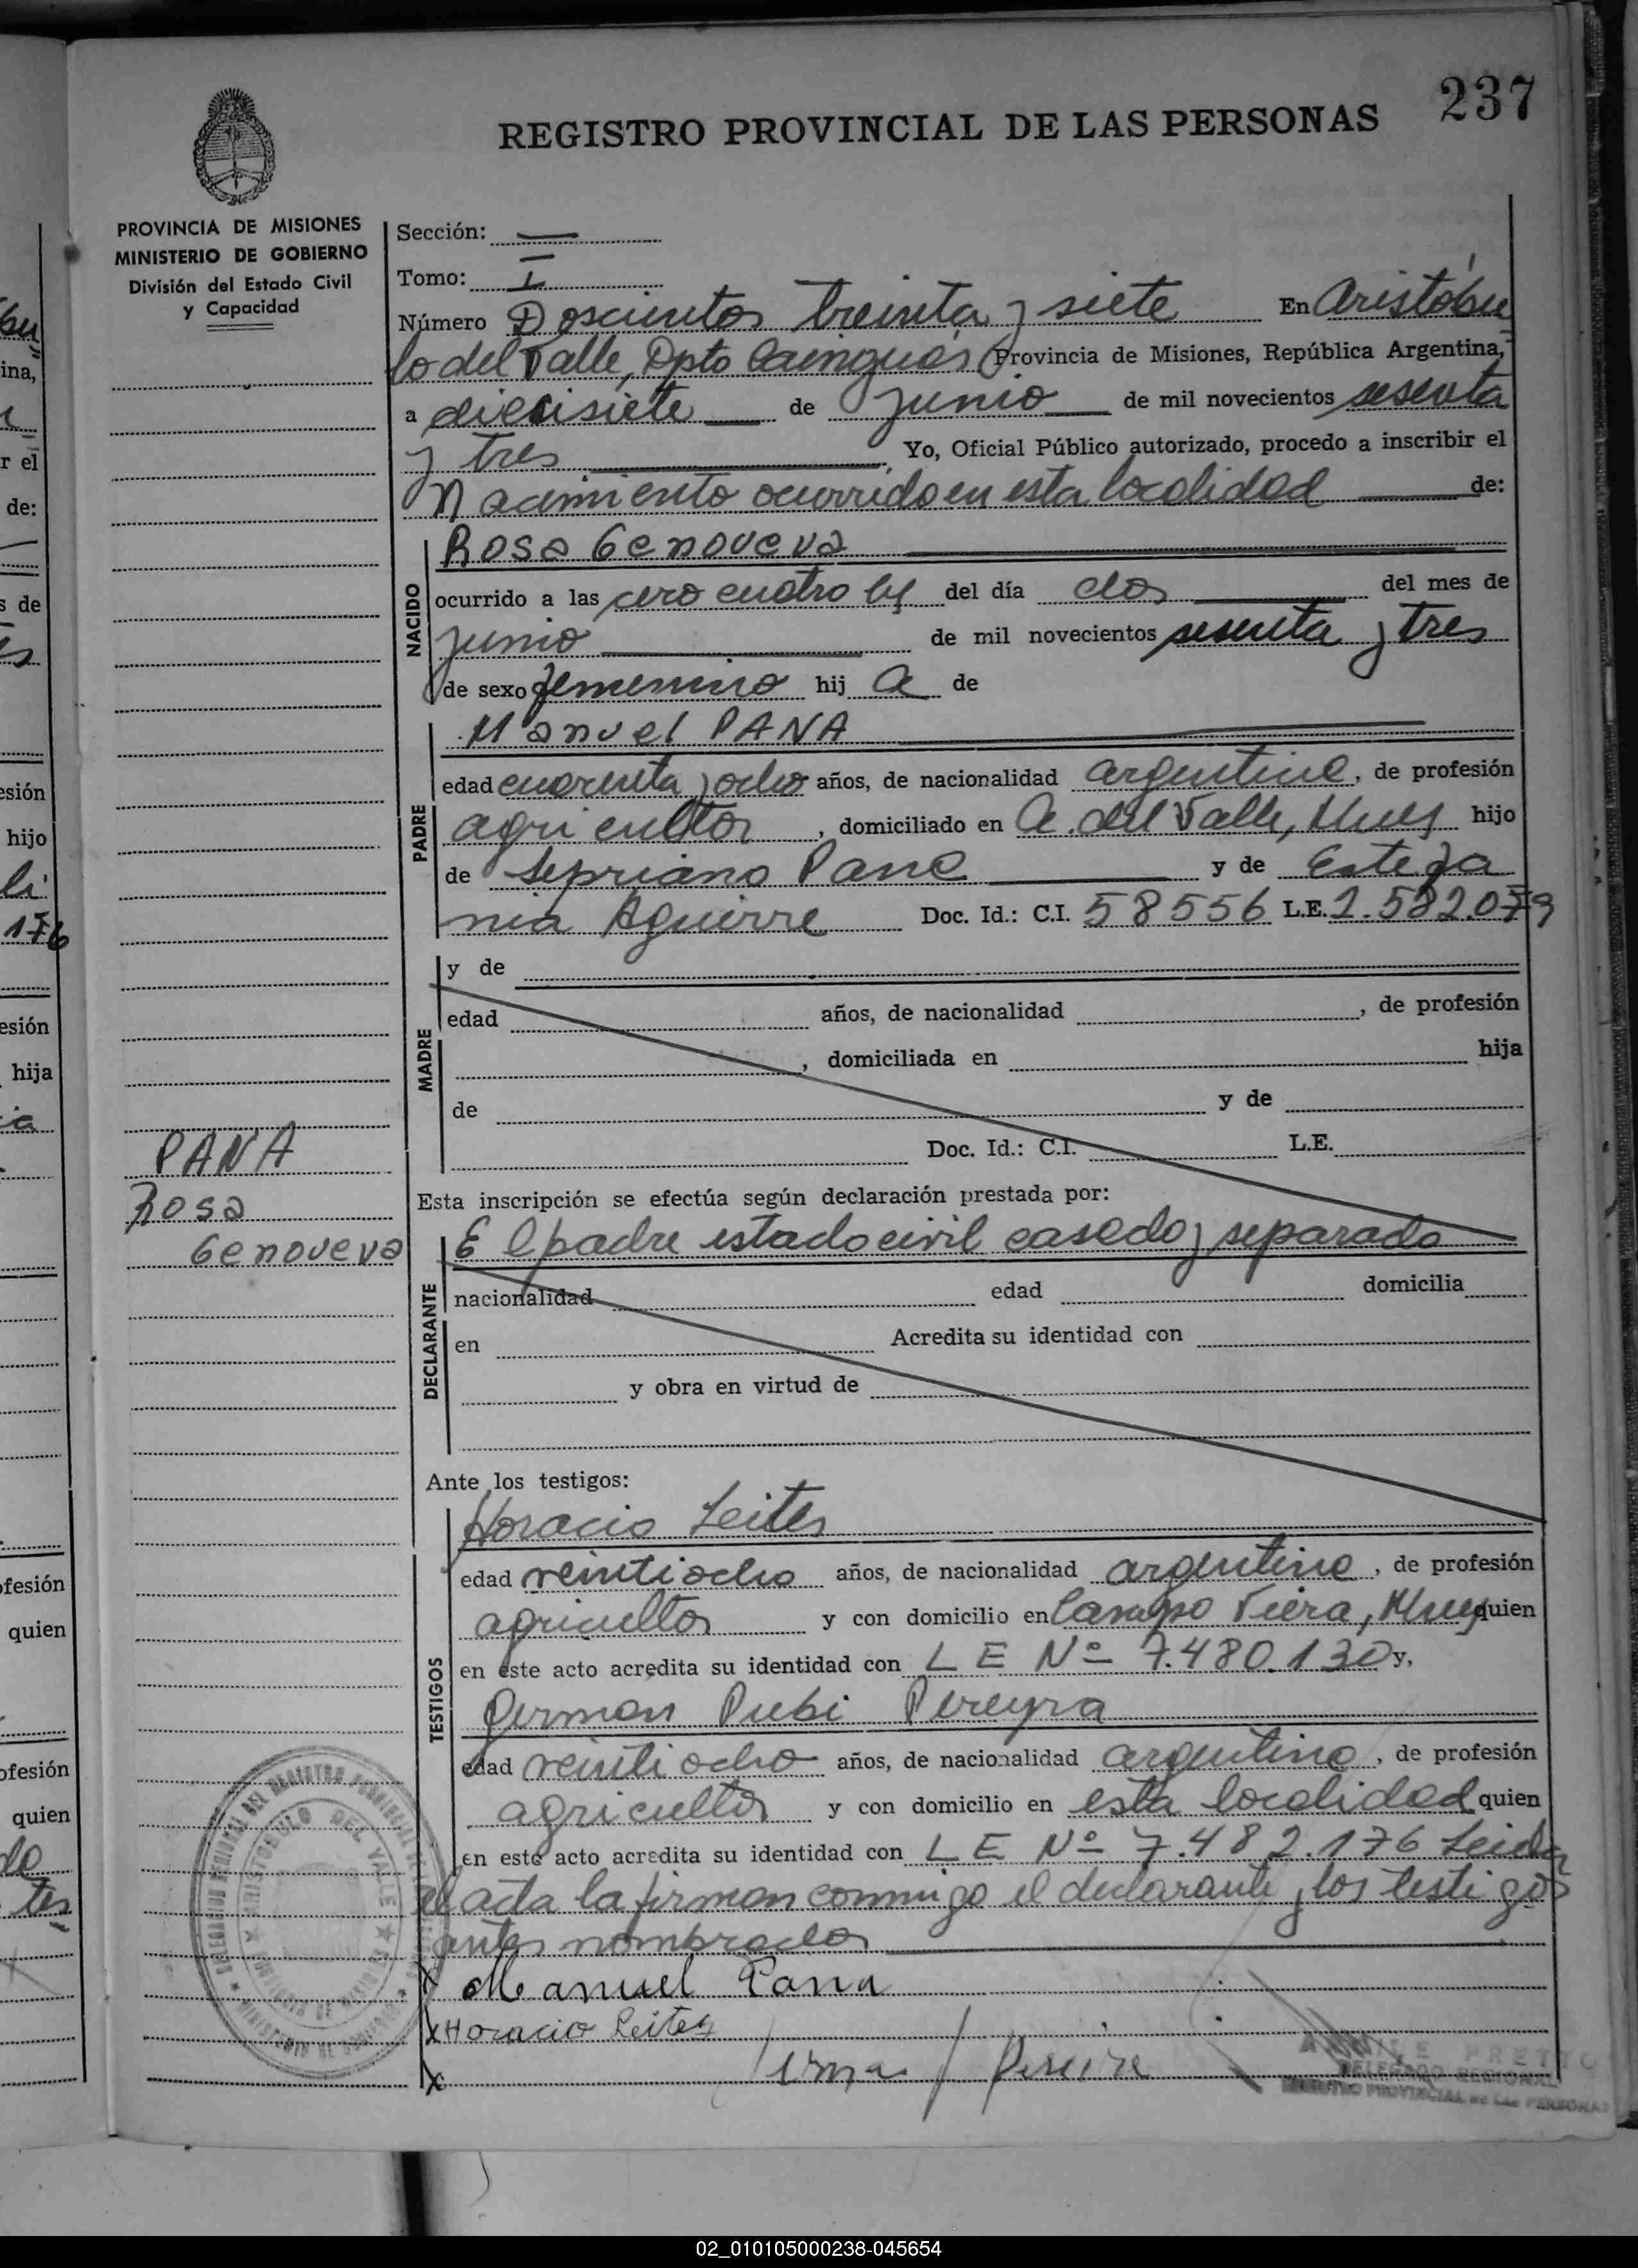 237
REGISTRO PROVINCIAL DE LAS PERSONAS
PROVINCIA DE MISIONES
MINISTERIO DE GOBIERNO
División del Estado Civil
y Capacidad
Sección: —
Tomo: I
Número Doscientos treinta y siete En Aristóbu
lo del Valle, Dpto Cainguás Provincia de Misiones, República Argentina,
a diecisiete de junio de mil novecientos sesenta
y tres Yo, Oficial Público autorizado, procedo a inscribir el
Nacimiento ocurrido en esta localidad de:
NACIDO
Rosa Genoveva
ocurrido a las cero cuatro hs del día dos del mes de
junio de mil novecientos sesenta y tres
de sexo femenino hij a de
PADRE
Manuel PANA
edad cuarenta y ocho años, de nacionalidad argentina, de profesión
agricultor, domiciliado en A. del Valle, Mnes hijo
de Sepriano Pana y de Estefa
nia Aguirre Doc. Id.: C.I. 58556 L.E. 2.582.079
MADRE
y de
edad años, de nacionalidad , de profesión
, domiciliada en hija
de y de
Doc. Id.: C.I. L.E.
PANA
Rosa
Genoveva
Esta inscripción se efectúa según declaración prestada por:
DECLARANTE
El padre estado civil casado y separado
nacionalidad edad domicilia
en Acredita su identidad con
y obra en virtud de
Ante los testigos:
TESTIGOS
Horacio Leites
edad veintiocho años, de nacionalidad argentino, de profesión
agricultor y con domicilio en Campo Viera, Mnes quien
en este acto acredita su identidad con L E Nº 7.480.130 y,
German Pereyra
edad veintiocho años, de nacionalidad argentino, de profesión
agricultor y con domicilio en esta localidad quien
en este acto acredita su identidad con L E Nº 7.482.176 Leida
el acta la firman conmigo el declarante y los testigos
antes nombrados
x Manuel Pana
x Horacio Leites
x
DELEGADO REGIONAL
REGISTRO PROVINCIAL DE LAS PERSONAS
02_010105000238-045654